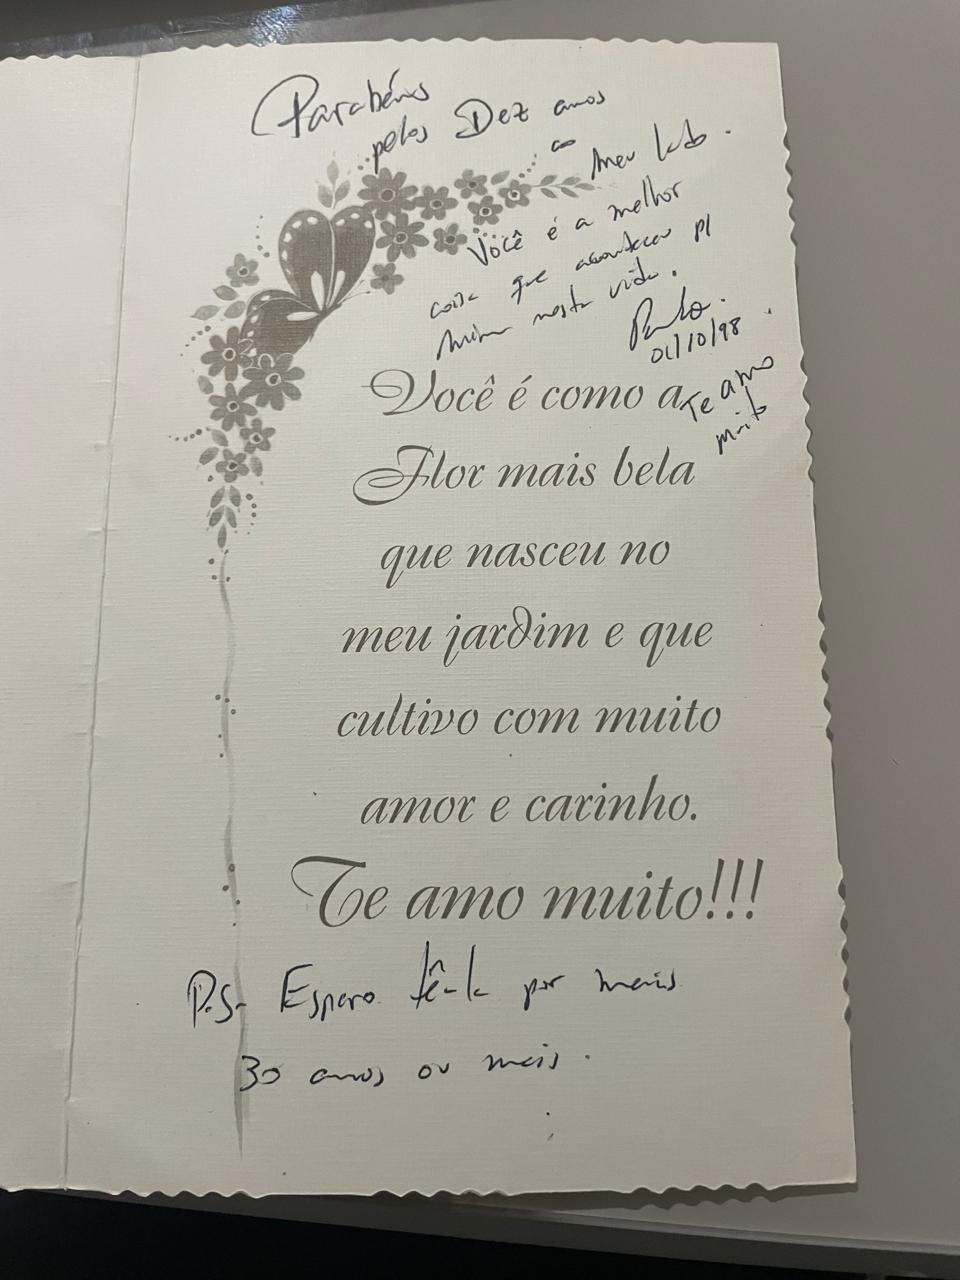 Parabéns
pelos Dez anos
ao meu lado.
Você é a melhor
coisa que aconteceu p/
mim nesta vida.
Paulo.
01/10/98
Te amo
muito
Você é como a
Flor mais bela
que nasceu no
meu jardim e que
cultivo com muito
amor e carinho.
Te amo muito!!!
P.S- Espero tê-la por mais
30 anos ou mais.